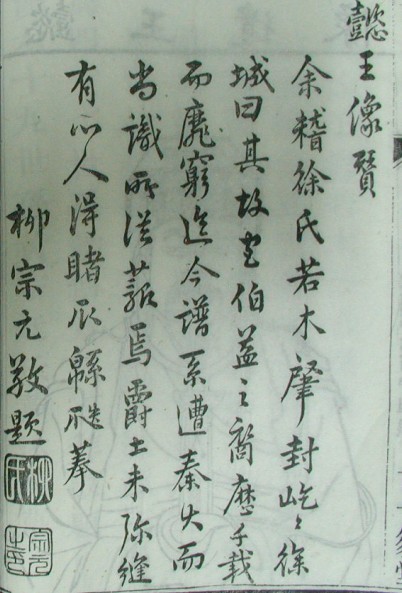 懿王像贊
余稽徐氏若木肇封屹〻徐
城曰其故宅伯益之裔歷千載
而靡窮迄今譜系遭秦火而
尚識所從焉爵土未弥縫
有心人得睹瓜緜瓞
柳宗元敬題
柳氏
宗元之印